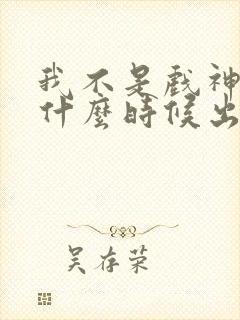 我不是戲神
什麼時候出
吴存荣